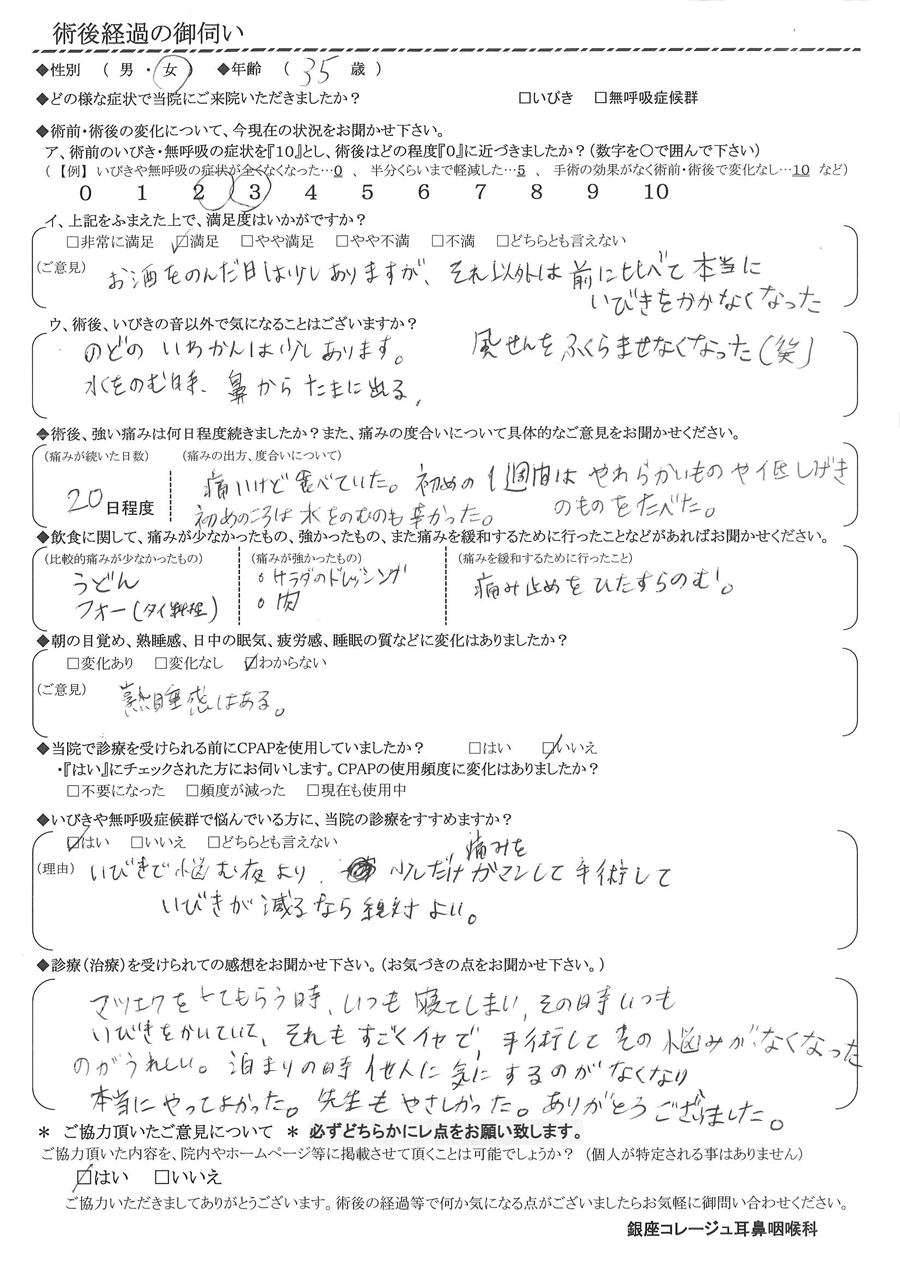 術後経過の御伺い
◆性別 ( 男 ・ 女 ) ◆年齢 ( 35 歳 )
◆どの様な症状で当院にご来院いただきましたか? □いびき □無呼吸症候群
◆術前・術後の変化について、今現在の状況をお聞かせ下さい。
ア、術前のいびき・無呼吸の症状を『10』とし、術後はどの程度『0』に近づきましたか?(数字を○で囲んで下さい)
(【例】 いびきや無呼吸の症状が全くなくなった…0 、 半分くらいまで軽減した…5 、 手術の効果がなく術前・術後で変化なし…10 など)
0 1 2 3 4 5 6 7 8 9 10
イ、上記をふまえた上で、満足度はいかがですか?
□非常に満足 ☑満足 □やや満足 □やや不満 □不満 □どちらとも言えない
(ご意見) お酒をのんだ日は少しありますが、それ以外は前に比べて本当に
いびきをかかなくなった
ウ、術後、いびきの音以外で気になることはございますか?
のどの いわかんは少しあります。 風せんをふくらませなくなった(笑)
水をのむ時、鼻からたまに出る。
◆術後、強い痛みは何日程度続きましたか?また、痛みの度合いについて具体的なご意見をお聞かせください。
(痛みが続いた日数) (痛みの出方、度合いについて)
20日程度 痛いけど食べていた。初めの1週間はやわらかいものや低しげき
のものをたべた。
初めのころは水をのむのも辛かった。
◆飲食に関して、痛みが少なかったもの、強かったもの、また痛みを緩和するために行ったことなどがあればお聞かせください。
(比較的痛みが少なかったもの) (痛みが強かったもの) (痛みを緩和するために行ったこと)
うどん ○サラダのドレッシング 痛み止めをひたすらのむ。
フォー(タイ料理) ○肉
◆朝の目覚め、熟睡感、日中の眠気、疲労感、睡眠の質などに変化はありましたか?
□変化あり □変化なし ☑わからない
(ご意見) 熟睡感はある。
◆当院で診療を受けられる前にCPAPを使用していましたか? □はい ☑いいえ
・『はい』にチェックされた方にお伺いします。CPAPの使用頻度に変化はありましたか?
□不要になった □頻度が減った □現在も使用中
◆いびきや無呼吸症候群で悩んでいる方に、当院の診療をすすめますか?
☑はい □いいえ □どちらとも言えない
(理由) いびきで悩む夜より、少しだけ痛みをガマンして手術して
いびきが減るなら絶対よい。
◆診療(治療)を受けられての感想をお聞かせ下さい。(お気づきの点をお聞かせ下さい。)
マツエクをとてもらう時、いつも寝てしまい、その時いつも
いびきをかいていて、それもすごくイヤで、手術してその悩みがなくなった
のがうれしい。泊まりの時他人に気にするのがなくなり
本当にやってよかった。先生もやさしかった。ありがとうございました。
* ご協力頂いたご意見について * 必ずどちらかにレ点をお願い致します。
ご協力頂いた内容を、院内やホームページ等に掲載させて頂くことは可能でしょうか? (個人が特定される事はありません)
☑はい □いいえ
ご協力いただきましてありがとうございます。術後の経過等で何か気になる点がございましたらお気軽に御問い合わせください。
銀座コレージュ耳鼻咽喉科